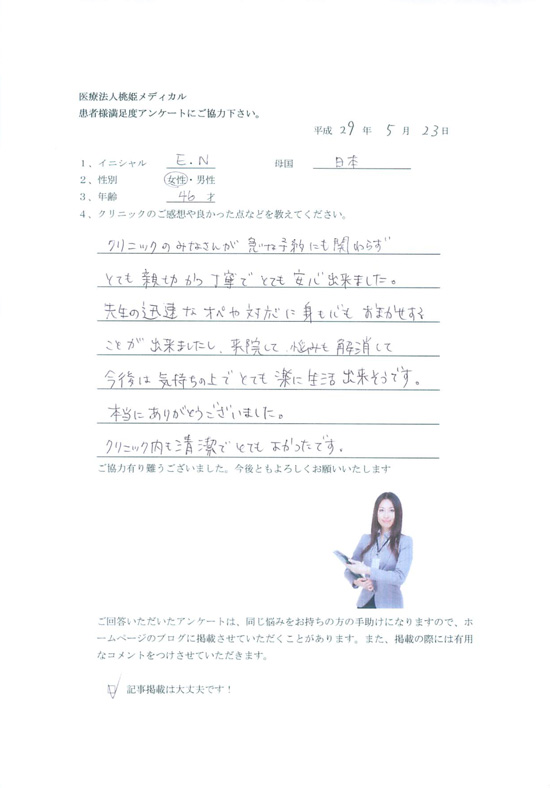 医療法人桃姫メディカル
患者様満足度アンケートにご協力下さい。
平成 29 年 5 月 23 日
1、イニシャル E.N 母国 日本
2、性別 女性・男性
3、年齢 46 才
4、クリニックのご感想や良かった点などを教えてください。
クリニックのみなさんが 急な予約にも関わらず
とても 親切かつ丁寧で とても 安心出来ました。
先生の迅速な オペや対応に 身も心も おまかせする
ことが 出来ましたし、来院して、悩みも 解消して
今後は 気持ちの上で とても 楽に 生活 出来そうです。
本当に ありがとうございました。
クリニック内も 清潔で とても よかったです。
ご協力有り難うございました。今後ともよろしくお願いいたします
ご回答いただいたアンケートは、同じ悩みをお持ちの方の手助けになりますので、ホ
ームページのブログに掲載させていただくことがあります。また、掲載の際には有用
なコメントをつけさせていただきます。
記事掲載は大丈夫です！